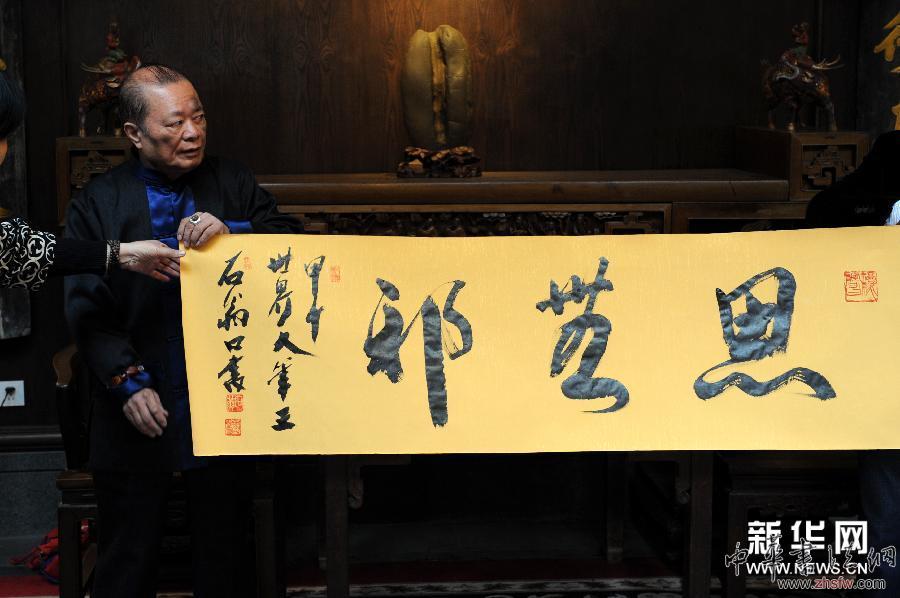 思無邪
甲午
世界大筆王
石翁口書
新华网
WWW.NEWS.CN
中华书法网
www.zhsfw.com